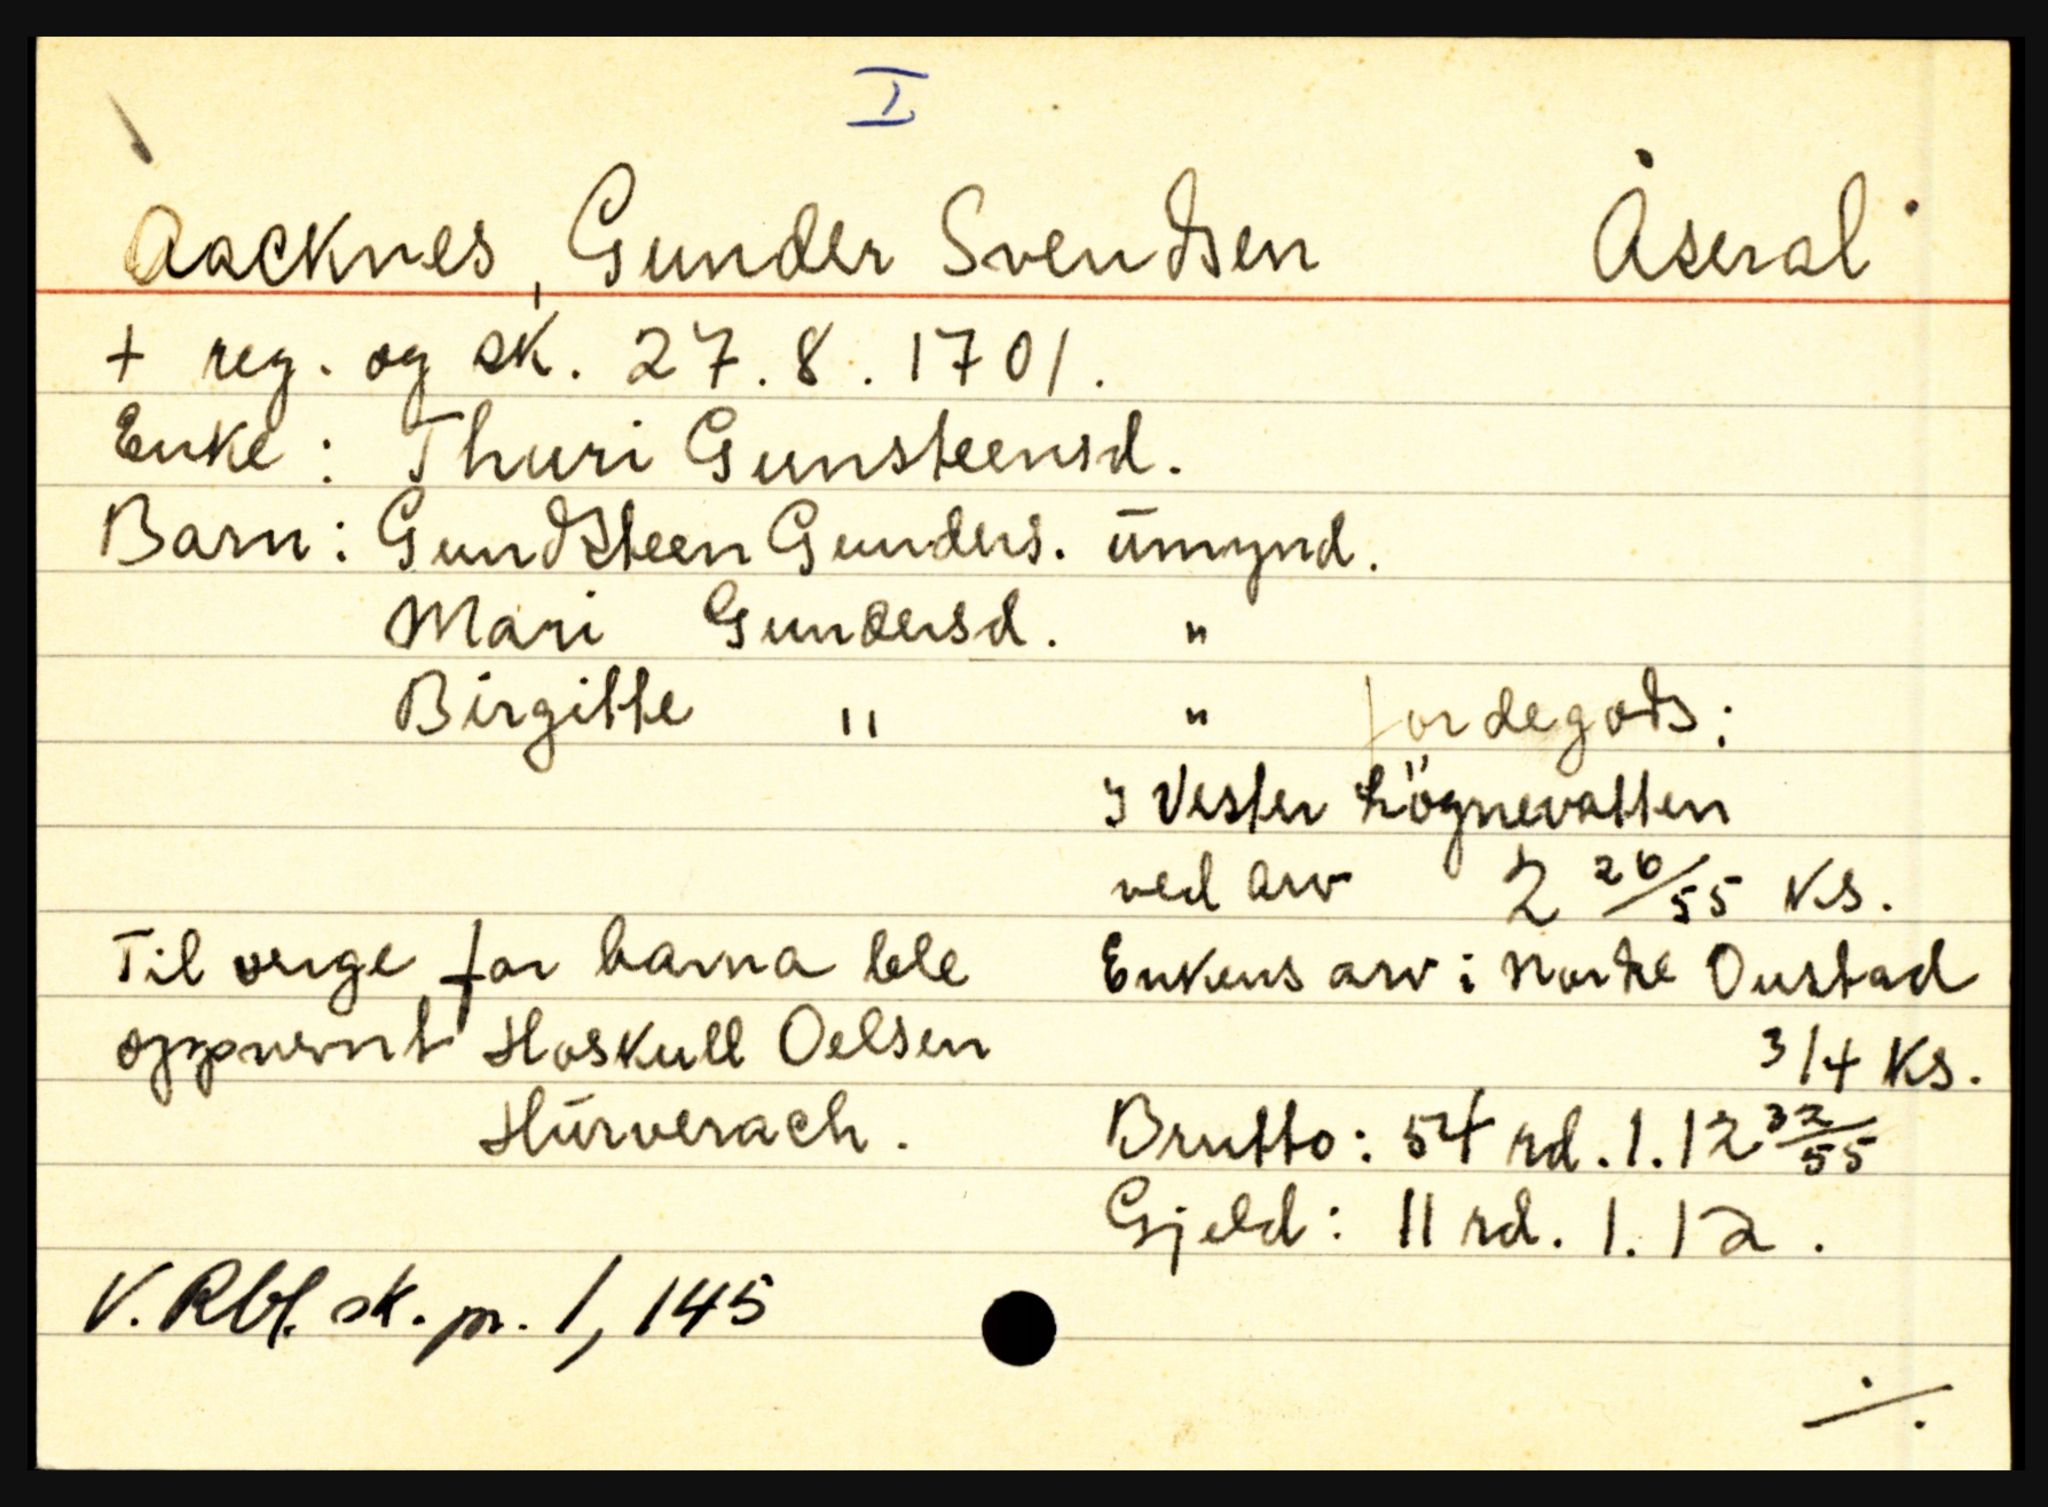 I
Aacknes, Gunder Svendsen Åseral
+ reg. og sk. 27.8.1701.
Enke: Thuri Gunsteensd.
Barn: Gundsteen Gunders. ūmynd.
Mari Gundersd. "
Birgitte " " Jordegods:
I Vester Lögnevatten
ved arv 2 26/55 Ks.
Til verge for barna ble
oppnevnt Hoskull Oelsen
Hūrverach.
Enkens arv i Nordre Oustad
3/4 Ks.
Brutto: 54 rd. 1. 12 32/55
Gjeld: 11 rd. 1. 12.
V. Rbl. sk. pr. 1, 145
./.